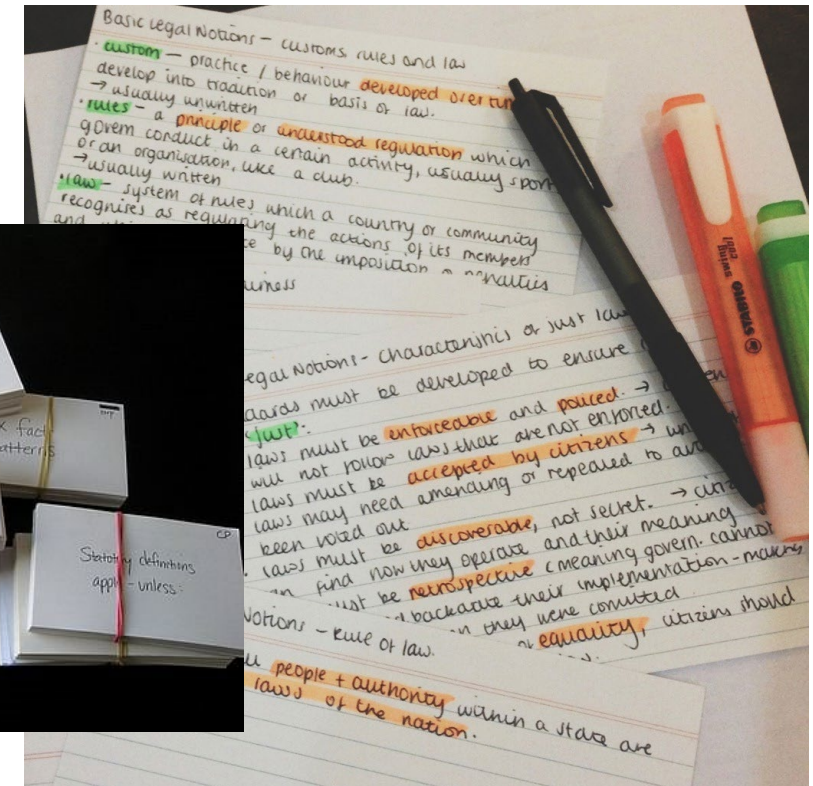 Basic Legal Notions – customs, rules and law
· custom – practice / behaviour developed over
develop into tradition or basis of law.
→ usually unwritten
· rules – a principle or understood regulation which
govern conduct in a certain activity, usually sport
or an organisation, like a club.
→ usually written
· law – system of rules which a country or community
recognises as regulating the actions of its members
and by the imposition penalties
Legal Notions – Characteristics of just
must be developed to ensure
'just':
laws must be enforceable and policed. →
will not follow laws that are not enforced.
laws must be accepted by citizens →
laws may need amending or repealed to
been voted out
laws must be discoverable, not secret. →
find how they operate and their meaning
be retrospective (meaning govern. cannot
backdate their implementation – making
they were committed
equality, citizens should
Notions – Rule of law.
people + authority within a state are
laws of the nation.
fact
patterns
CP
Statutory definitions
apply – unless:
STABILO
swing
cool